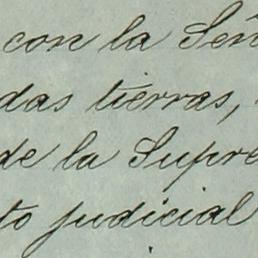 con la Señ
das tierras,
de la Supre
to judicial